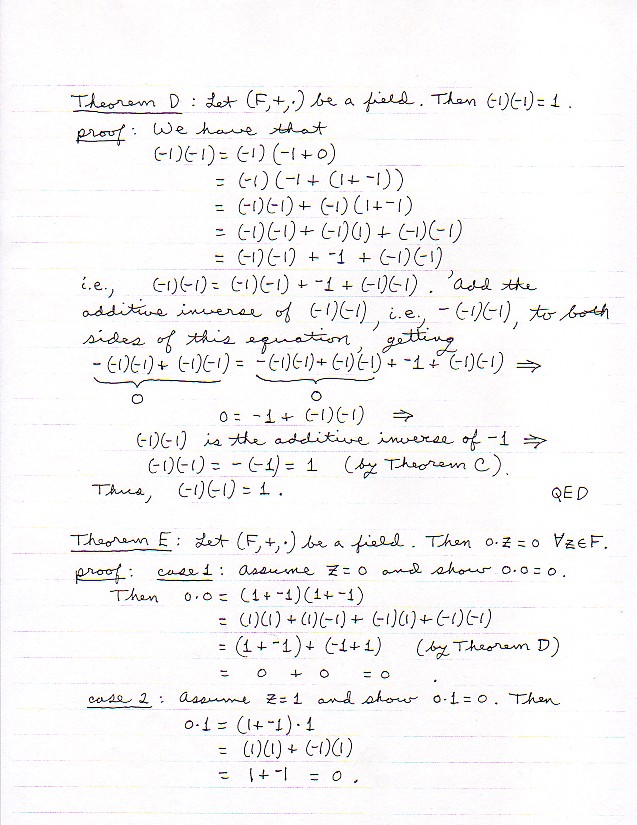 Theorem D : Let (F,+,·) be a field. Then (-1)(-1)=1.
proof: We have that
(-1)(-1) = (-1)(-1+0)
= (-1)(-1+(1+-1))
= (-1)(-1)+(-1)(1+-1)
= (-1)(-1)+(-1)(1)+(-1)(-1)
= (-1)(-1) + -1 + (-1)(-1)
i.e., (-1)(-1) = (-1)(-1) + -1 + (-1)(-1). Add the
additive inverse of (-1)(-1), i.e., -(-1)(-1), to both
sides of this equation, getting
-(-1)(-1)+(-1)(-1) = -(-1)(-1)+(-1)(-1)+ -1 + (-1)(-1) ⇒
0 0
0 = -1 + (-1)(-1) ⇒
(-1)(-1) is the additive inverse of -1 ⇒
(-1)(-1) = -(-1) = 1 (by Theorem C).
Thus, (-1)(-1) = 1. QED
Theorem E: Let (F,+,·) be a field. Then 0·z=0 ∀z∈F.
proof: case 1: Assume z=0 and show 0·0=0.
Then 0·0 = (1+-1)(1+-1)
= (1)(1)+(1)(-1)+(-1)(1)+(-1)(-1)
= (1+-1)+(-1+1) (by Theorem D)
= 0 + 0 = 0.
case 2: Assume z=1 and show 0·1=0. Then
0·1 = (1+-1)·1
= (1)(1)+(-1)(1)
= 1+-1 = 0.